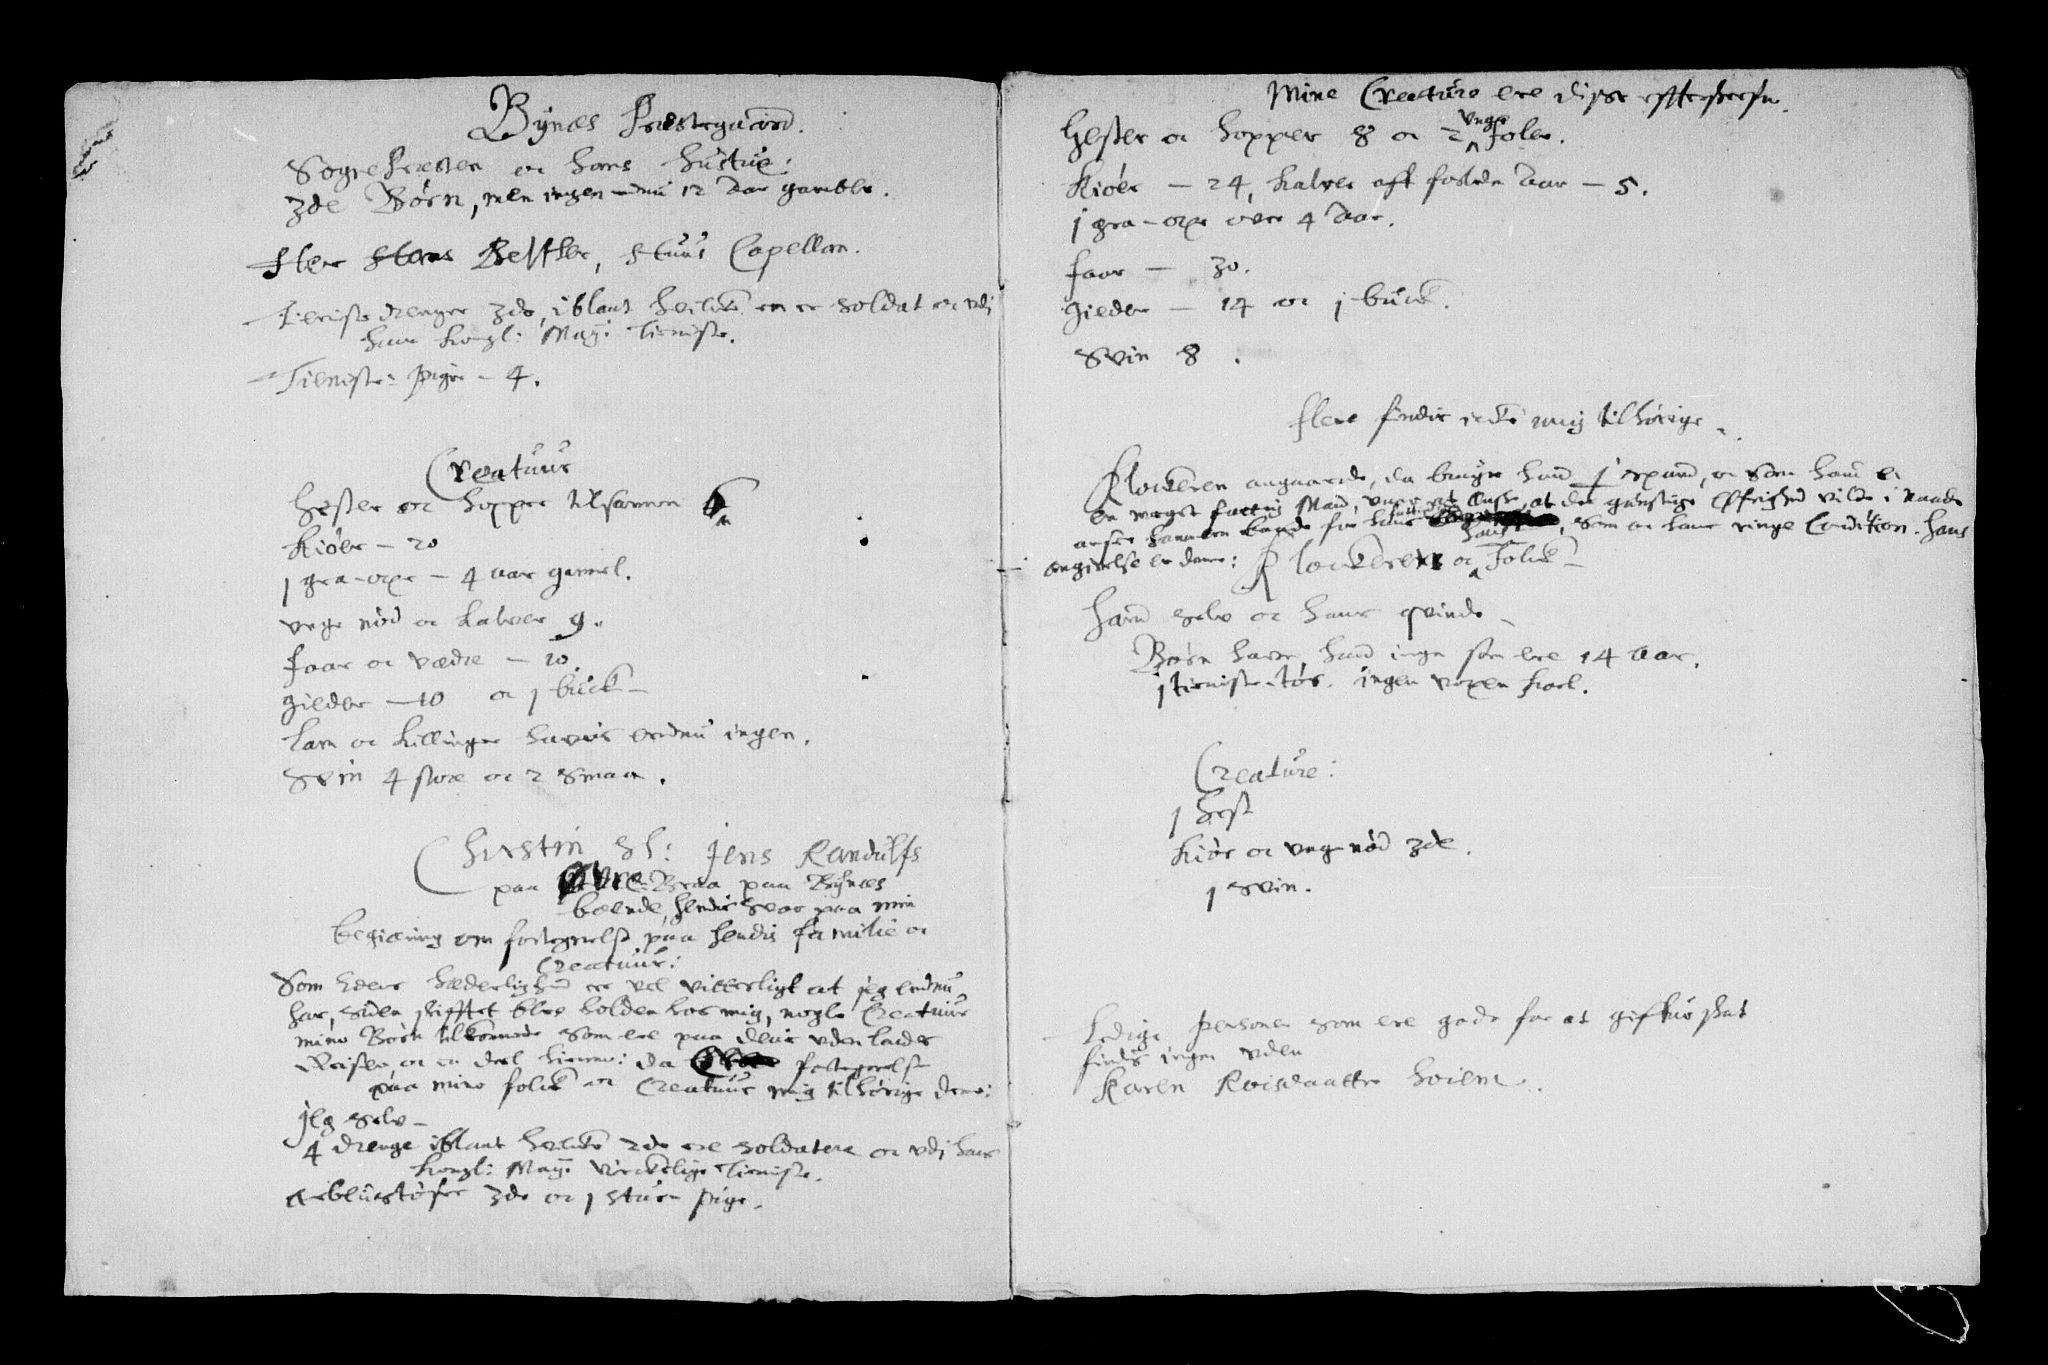 Bynæs Præstegaard.
Sognepræsten oc hans hustrue.
3de Börn, men ingen endnu 12 Aar gamble.
Her Hans Capellan.
Tieniste drenge 3de, iblant huilcke en er soldat oc udj
hans Kongl: Mayi: Tieniste.
Tieniste: piger – 4.
Creatuur
Hester oc hopper tilsammen 6
Kiöer – 20
1 gra-oxe – 4 aar gammel.
unge nöd oc Kalver 9.
Faar oc vædre – 20.
gieder – 10 oc 1 buck –
Lam oc Killinger haves endnu ingen.
Svin 4 store oc 2 smaa.
Christin Sl: Jens Randulfs
paa Övre-Braa paa Bynæs
boende, hendis svar paa min
begiæring om fortegnelse paa hendis familie oc
Creatuur:
Som Eders hæderlighed er vel vitterligt at jeg endnu
har, siden skifftet blev holden hos mig, nogle Creatuur
mine Börn tilkommende som ere paa deris uden landes
Reiser, oc en deel hiemme: da fortegnelse
paa mine folck oc Creatuur mig tilhörige ere:
Jeg selv –
4 drenge iblant huilcke 2de ere soldater oc udj hans
Kongl: Mayi: virckelige Tieniste.
3de oc 1 stue pige.
Mine Creature ere disse effterskrefne.
Hester oc hopper 8 oc 2 unge Foler.
Kiöer – 24, Kalver aff forleden Aar – 5.
1 gra-oxe over 4 Aar.
Faar – 30.
gieder – 14 oc 1 buck.
Svin 8.
flere findis icke mig tilhörige.
Klockeren angaaende, da bruger hand 1 spand, oc som hand er
en meget fattig Mand, at den gunstige Öfrighed vilde i Naade
ansee hannem for hans, som oc hans ringe Condition. Hans
angivelse er denne: Klockeren oc hans Folck –
Hand selv oc hans qvinde –
Börn haver hand ingen som ere 14 aar.
1 tieniste-tös. ingen voxen karl.
Creature:
1 hest
Kiör oc ung nöd 3de.
1 svin.
Ledige personer som ere gode for at giffve skat
findis ingen uden
Karen Roisdaatter